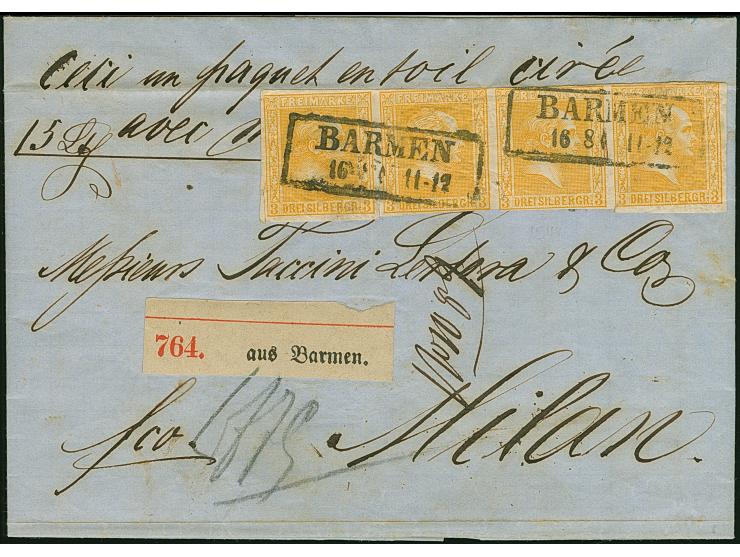 Ceci un paquet en toil cirée
15 avec
FREIMARKE FREIMARKE FREIMARKE
BARMEN BARMEN
16 11-12 16 8 11-12
3 DREI SILBERGR. 3 3 DREI SILBERGR. 3 3 DREI SILBERGR. 3 3 DREI SILBERGR. 3
Messieurs Taccini & Co
764. aus Barmen.
fco. Milan.